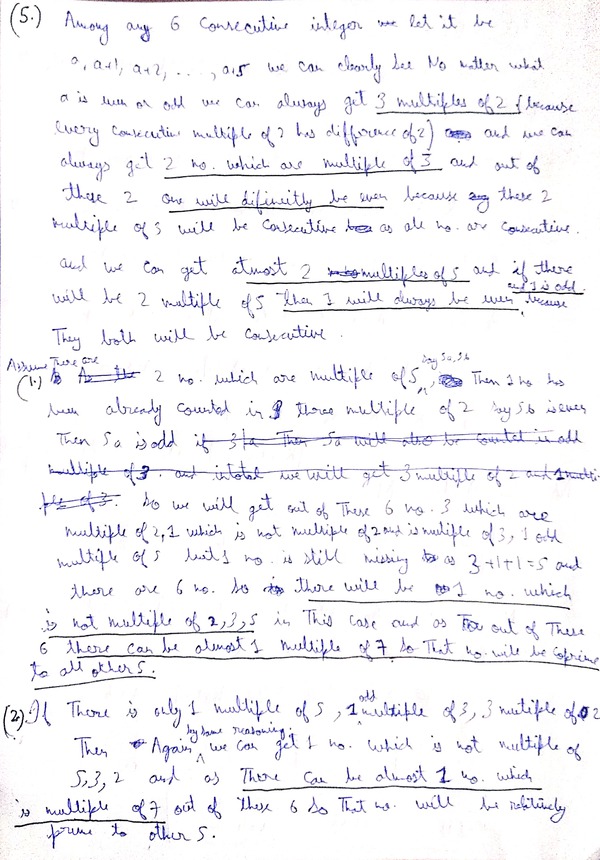 (5.) Among any 6 Consecutive integer we let it be
a, a+1, a+2, ..., a+5 we can clearly see No matter what
a is even or odd we can always get 3 multiples of 2 (because
every consecutive multiple of 2 has difference of 2) and we can
always get 2 no. which are multiple of 3 and out of
these 2 one will difinitly be even because these 2
multiple of 3 will be consecutive as all no. are consecutive.
and we can get atmost 2 multiples of 5 and if there
will be 2 multiple of 5 then 1 will always be even and 1 is odd, because
They both will be consecutive.
Assume There are
(1.) 2 no. which are multiple of 5, say 5a, 5b Then 1 no has
been already counted in three multiple of 2 say 5b is even
Then 5a is odd if 3|a Then 5a will also be counted in odd
multiple of 3. and intotal we will get 3 multiple of 2 and 1 multi-
ple of 3. So we will get out of These 6 no. 3 which are
multiple of 2, 1 which is not multiple of 2 and is multiple of 3, 1 odd
multiple of 5 but 1 no. is still missing as 3+1+1=5 and
there are 6 no. So there will be 1 no. which
is not multiple of 2,3,5 in This case and as out of These
6 there can be atmost 1 multiple of 7 So That no. will be coprime
to all other 5.
(2.) If There is only 1 multiple of 5, 1 odd multiple of 3, 3 mutiple of 2
Then Again by same reasoning, we can get 1 no. which is not multiple of
5,3,2 and as There can be atmost 1 no. which
is multiple of 7 out of these 6 So That no. will be relitively
prime to other 5.